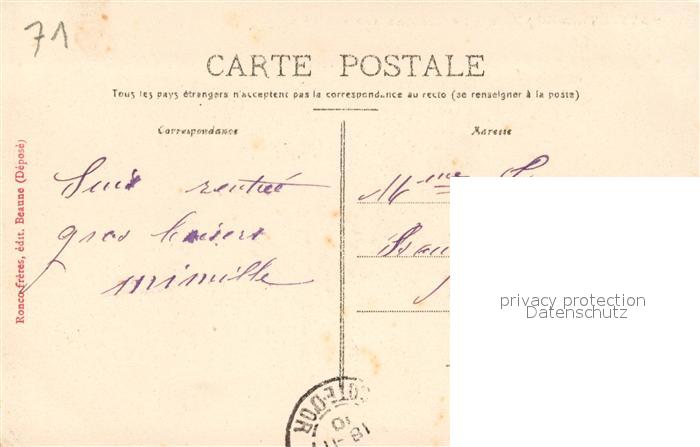 71
CARTE POSTALE
Tous les pays étrangers n'acceptent pas la correspondance au recto (se renseigner à la poste)
Correspondance
Adresse
Suis rentrée
gros baisers
mimille
Mme
privacy protection
Datenschutz
Ronco frères, édit. Beaune (Déposé)
COTE-D'OR
18
10